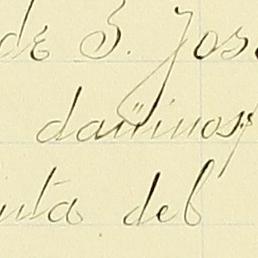 de S. José
dañinos,
unta del